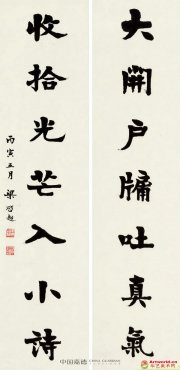 大開戶牖吐真氣
收拾光芒入小詩
丙寅五月 梁啟超
中国嘉德 CHINA GUARDIAN